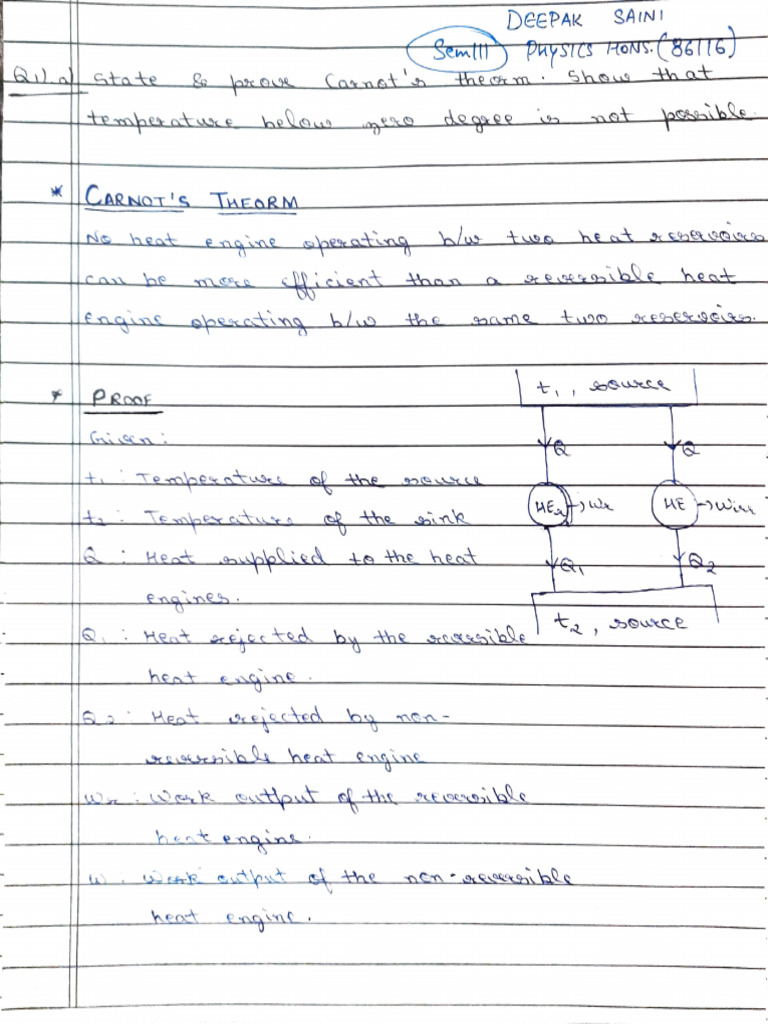 DEEPAK SAINI
SemIII PHYSICS HONS. (86116)
Q1).a) State & prove Carnot's theorm. Show that
temperature below zero degree is not possible.
* CARNOT'S THEORM
No heat engine operating b/w two heat reservoirs
can be more efficient than a reversible heat
engine operating b/w the same two reservoirs.
* PROOF
t1, source
Given:
Q Q
t1 : Temperature of the source
HEr → Wr HE → Wirr
t2 : Temperature of the sink
Q : Heat supplied to the heat
Q1 Q2
engines.
t2, source
Q1 : Heat rejected by the reversible
heat engine.
Q2 : Heat rejected by non-
reversible heat engine
Wr : Work output of the reversible
heat engine.
W. Work output of the non-reversible
heat engine.